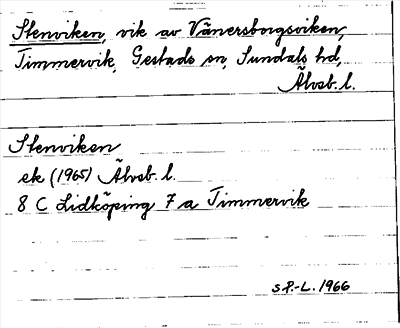 Stenviken, vik av Vänersborgsviken,
Timmervik, Gestads sn, Sundals hd,
Älvsb. l.
Stenviken
ek (1965) Älvsb. l.
8 C Lidköping 7 a Timmervik
S P.-L. 1966